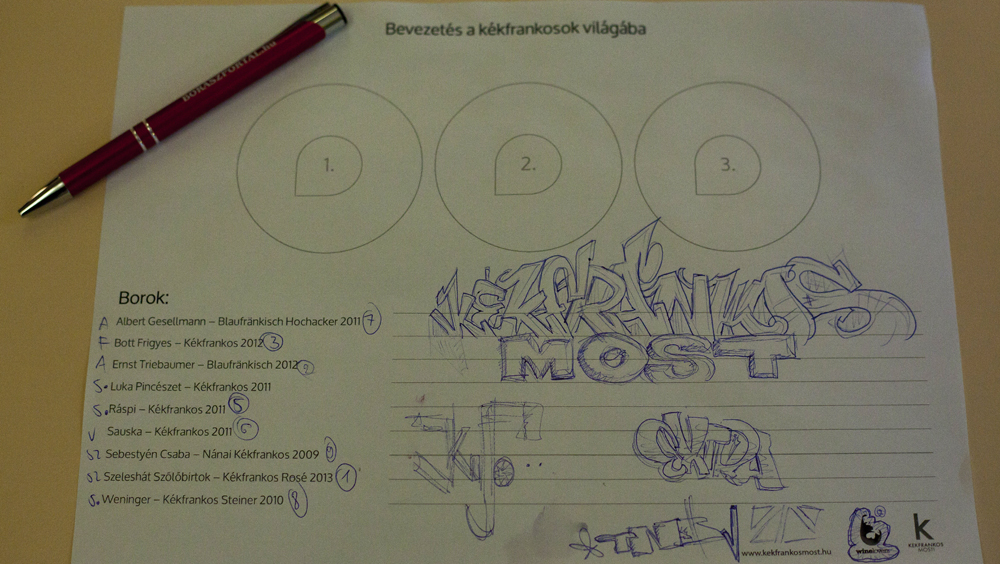 Bevezetés a kékfrankosok világába
BORASZPORTAL.hu
1. 2. 3.
Borok:
A Albert Gesellmann – Blaufränkisch Hochacker 2011 7
F Bott Frigyes – Kékfrankos 2012 3
A Ernst Triebaumer – Blaufränkisch 2012
S. Luka Pincészet – Kékfrankos 2011
S. Ráspi – Kékfrankos 2011 5
V Sauska – Kékfrankos 2011 6
SZ Sebestyén Csaba – Nánai Kékfrankos 2009
SZ Szeleshát Szőlőbirtok – Kékfrankos Rosé 2013 1
S. Weninger – Kékfrankos Steiner 2010 8
KÉKFRANKOS
MOST
www.kekfrankosmost.hu
k
KÉKFRANKOS
MOST!